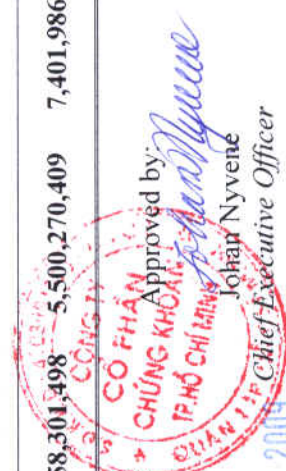 58,301,498 5,500,270,409 7,401,986
Approved by:
Johan Nyvene
Johan Nyvene
Chief Executive Officer
CÔNG T
CỔ PHẦN
CHỨNG KHOÁN
TP.HỒ CHÍ MINH
QUẬN 1
2009